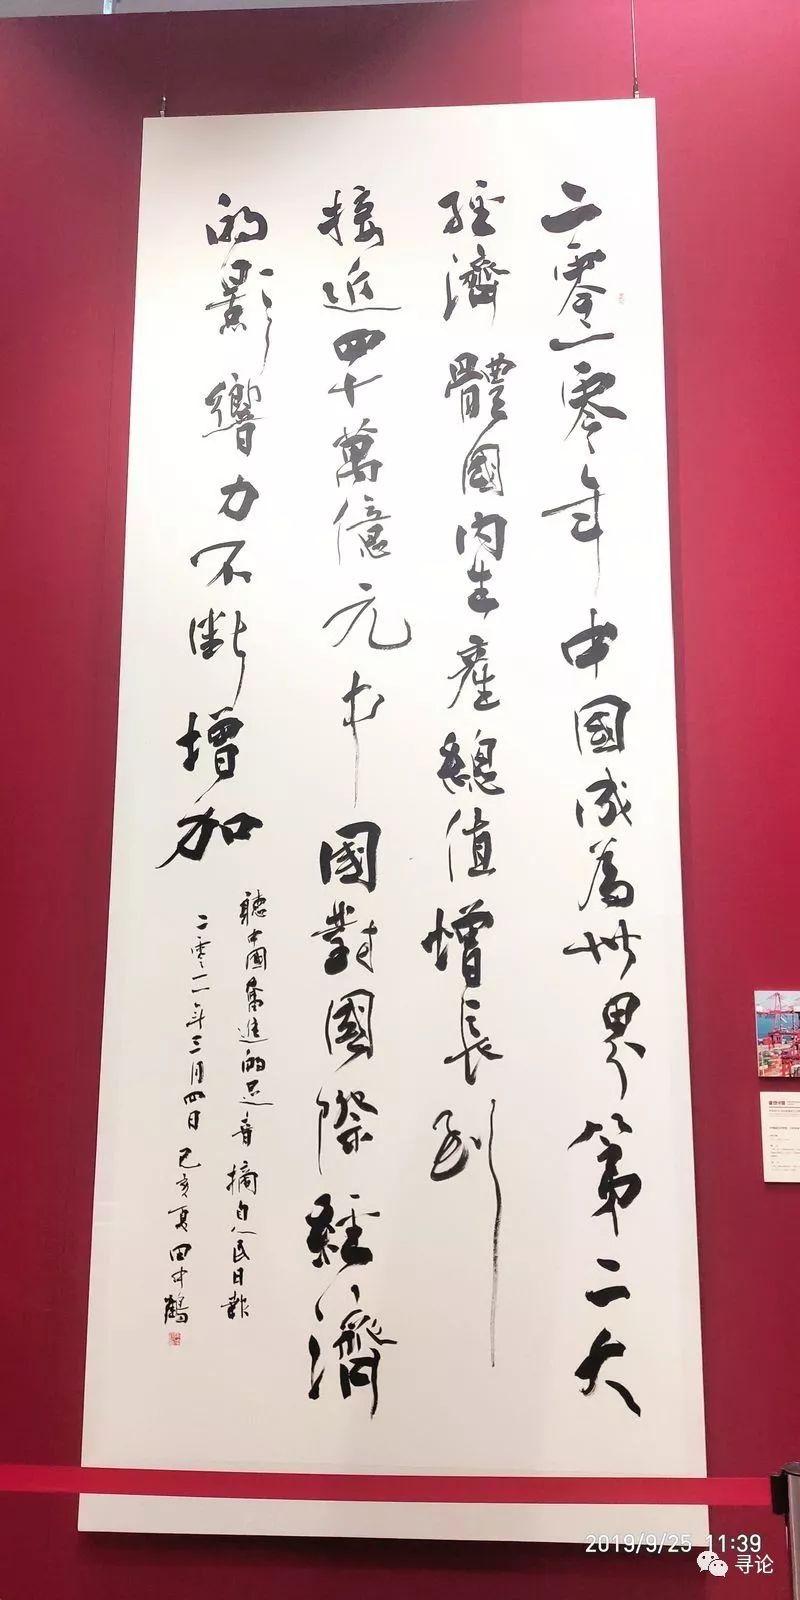 二零一零年中國成為世界第二大
經濟體國內生產總值增長到
接近四十萬億元中國對國際經濟
的影響力不斷增加
聽中國奮進的足音摘自人民日報
二零一一年三月四日己亥夏田中鶴
2019/9/25 11:39
寻论